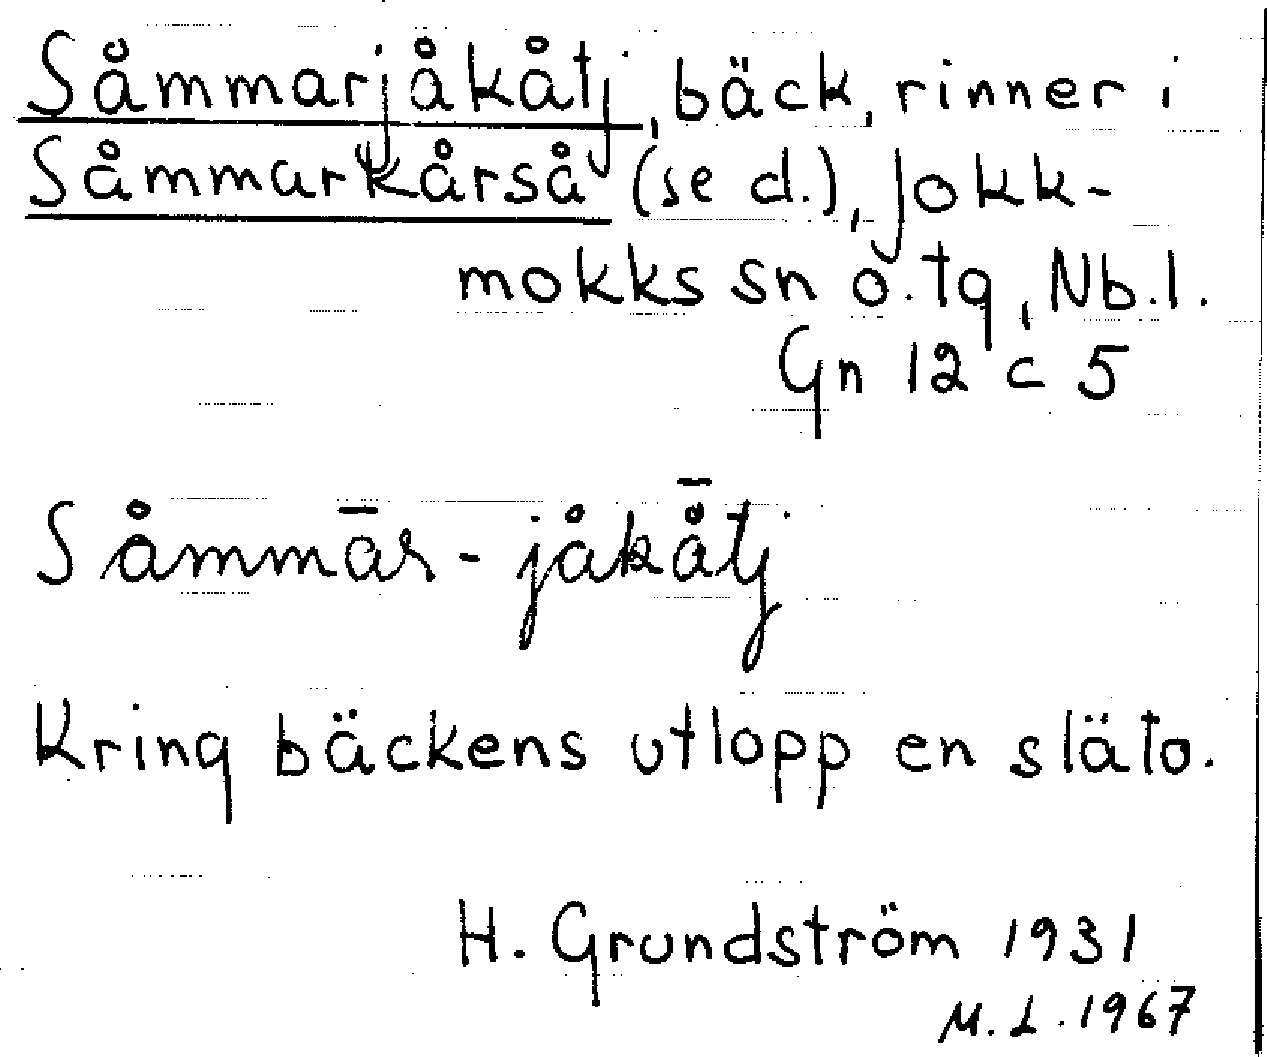 Såmmarjåkåtj, bäck, rinner i
Såmmarkårså (se d.), Jokk-
mokks sn o. tg, Nb.l.
Gn 12 c 5
Såmmār-jåkå̄tj
Kring bäckens utlopp en slåto.
H. Grundström 1931
M.L. 1967